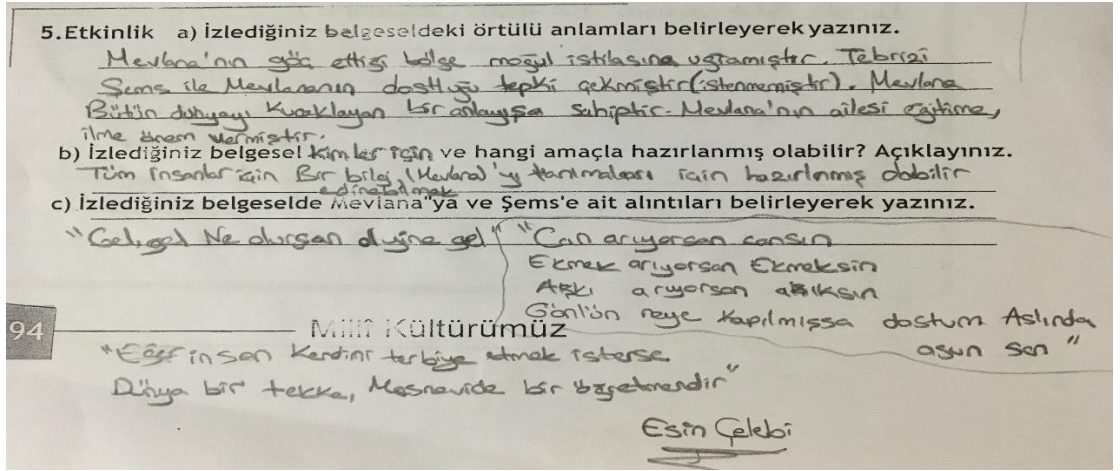 5.Etkinlik a) İzlediğiniz belgeseldeki örtülü anlamları belirleyerek yazınız.
Mevlana'nın göç ettiği bölge moğul istilasına uğramıştır. Tebrizi
Şems ile Mevlananın dostluğu tepki çekmiştir (istenmemiştir). Mevlana
Bütün dünyayı Kucaklayan bir anlayışa sahiptir. Mevlana'nın ailesi eğitime,
ilme önem vermiştir.
b) İzlediğiniz belgesel kimler için ve hangi amaçla hazırlanmış olabilir? Açıklayınız.
Tüm insanlar için Bir bilgi, (Mevlana)'yı tanımaları için hazırlanmış olabilir
edinebilmek
c) İzlediğiniz belgeselde Mevlana"ya ve Şems'e ait alıntıları belirleyerek yazınız.
"Gel, gel Ne olursan ol yine gel" "Can arıyorsan cansın
Ekmek arıyorsan Ekmeksin
Aşkı arıyorsan aşıksın
Gönlün neye kapılmışsa dostum Aslında
osun sen"
94 Millî Kültürümüz
"Eğer insan Kendini terbiye etmek isterse
Dünya bir tekke, Mesnevide bir öğretmendir"
Esin Çelebi